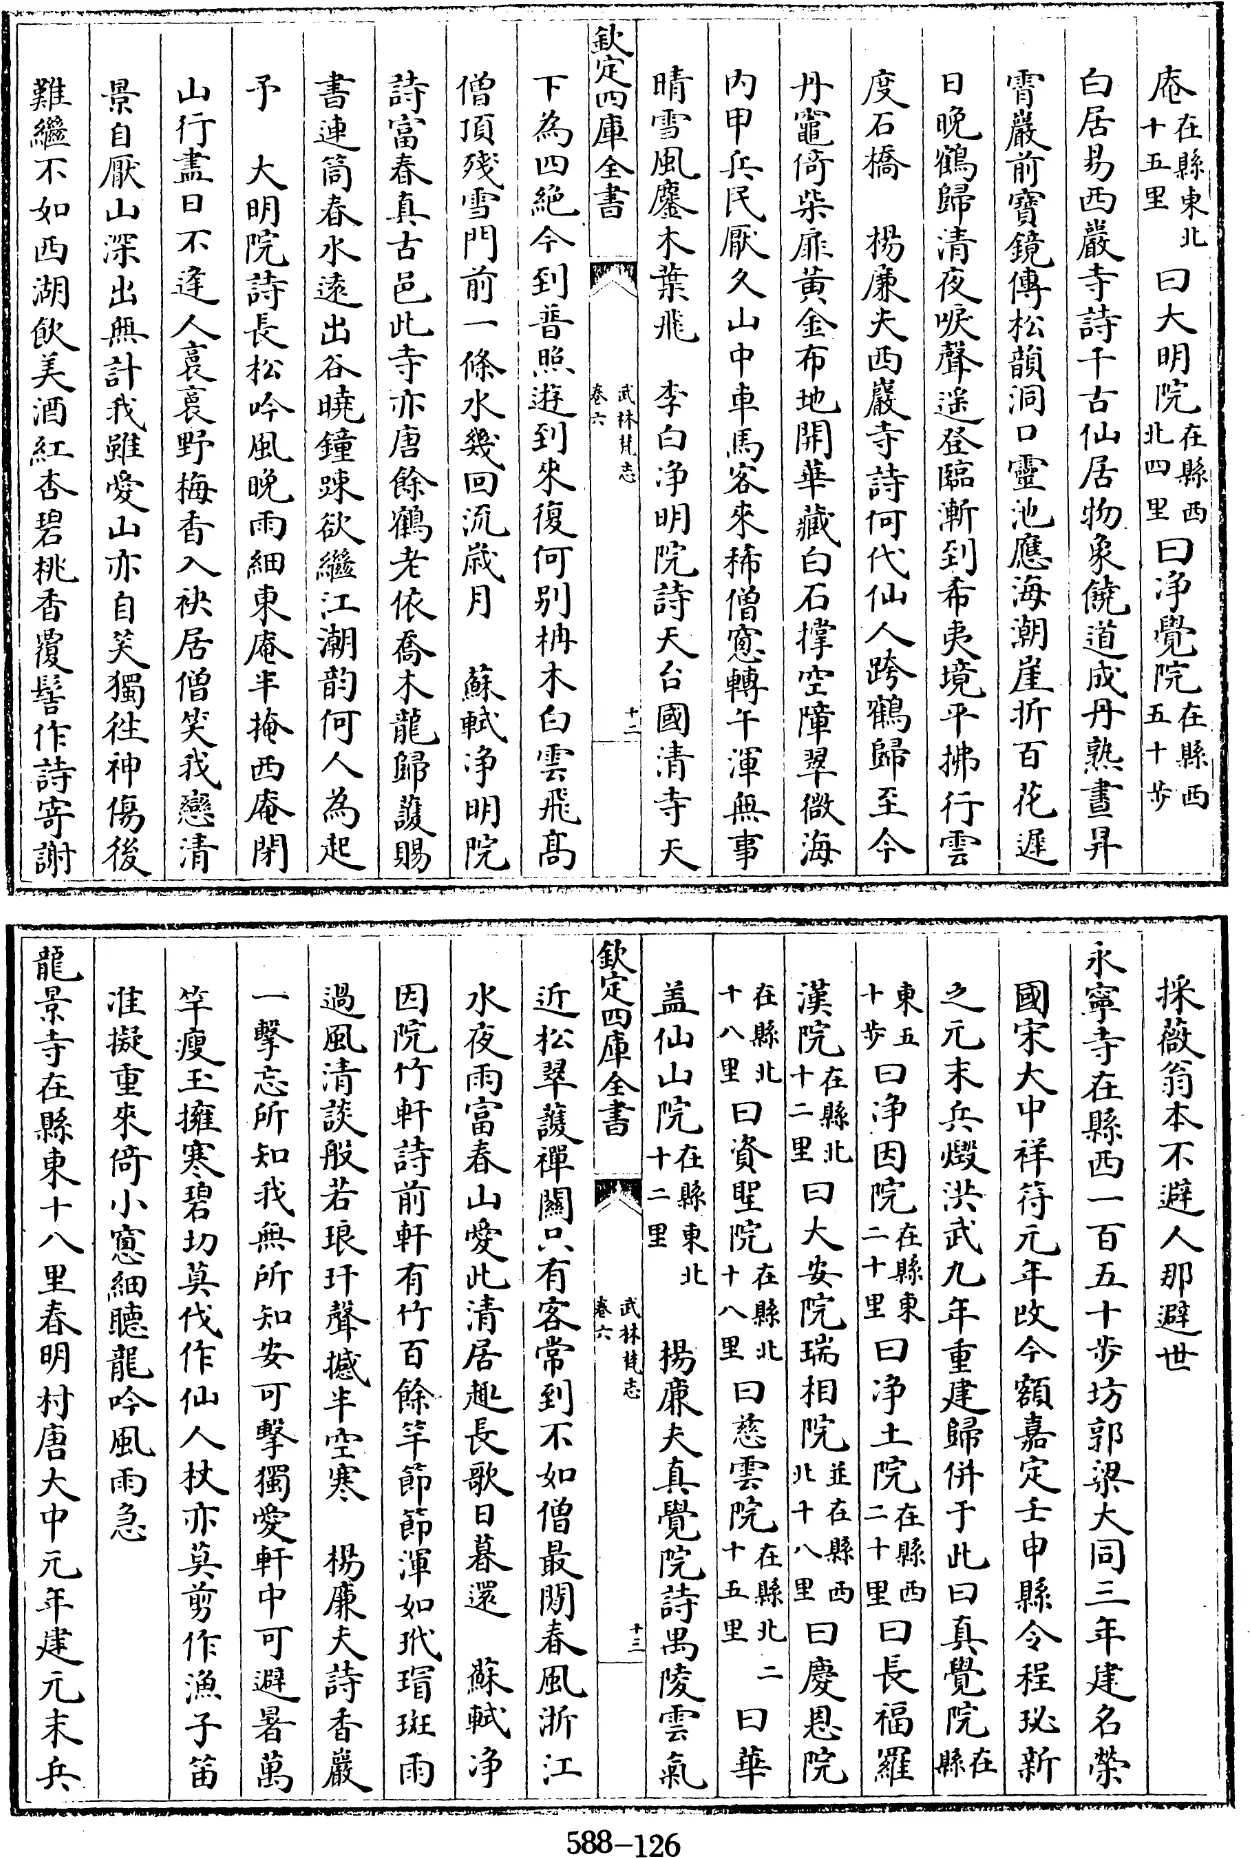 庵在縣東北十五里曰大明院在縣西北四里曰浄覺院在縣西五十步
白居易西巖寺詩千古仙居物象饒道成丹熟晝昇
霄巖前寶鏡傳松韻洞口靈池應海潮崖折百花遲
日晚鶴歸清夜唳聲遥登臨漸到希夷境平拂行雲
度石橋　楊廉夫西巖寺詩何代仙人跨鶴歸至今
丹竈倚柴扉黄金布地開華藏白石撑空障翠微海
内甲兵民厭久山中車馬客來稀僧窓轉午渾無事
晴雪風麈木葉飛　李白浄明院詩天台國清寺天
欽定四庫全書　武林梵志卷六　十二
下為四絶今到普照遊到來復何别枏木白雲飛髙
僧頂殘雪門前一條水幾回流嵗月　蘇軾浄明院
詩富春真古邑此寺亦唐餘鶴老依喬木龍歸護賜
書連筒春水遠出谷曉鐘踈欲繼江潮韵何人為起
予　大明院詩長松吟風晚雨細東庵半掩西庵閉
山行盡日不逢人裛裛野梅香入袂居僧笑我戀清
景自厭山深出無計我雖愛山亦自笑獨徃神傷後
難繼不如西湖飲美酒紅杏碧桃香覆髻作詩寄謝
採薇翁本不避人那避世
永寧寺在縣西一百五十步坊郭梁大同三年建名榮
國宋大中祥符元年改今額嘉定壬申縣令程珌新
之元末兵燬洪武九年重建歸併于此曰真覺院在縣
東五十步曰浄因院在縣東二十里曰浄土院在縣西二十里曰長福羅
漢院在縣北十二里曰大安院瑞相院並在縣西北十八里曰慶恩院
在縣北十八里曰資聖院在縣北十八里曰慈雲院在縣北二十五里曰華
盖仙山院在縣東北十二里　楊廉夫真覺院詩禺陵雲氣
欽定四庫全書　武林梵志卷六　十三
近松翠護禪關只有客常到不如僧最閒春風浙江
水夜雨富春山愛此清居趣長歌日暮還　蘇軾浄
因院竹軒詩前軒有竹百餘竿節節渾如玳瑁斑雨
過風清談般若琅玕聲撼半空寒　楊廉夫詩香巖
一擊忘所知我無所知安可擊獨愛軒中可避暑萬
竿瘦玉擁寒碧切莫伐作仙人杖亦莫剪作漁子笛
准擬重來倚小窓細聽龍吟風雨急
龍景寺在縣東十八里春明村唐大中元年建元末兵
588-126